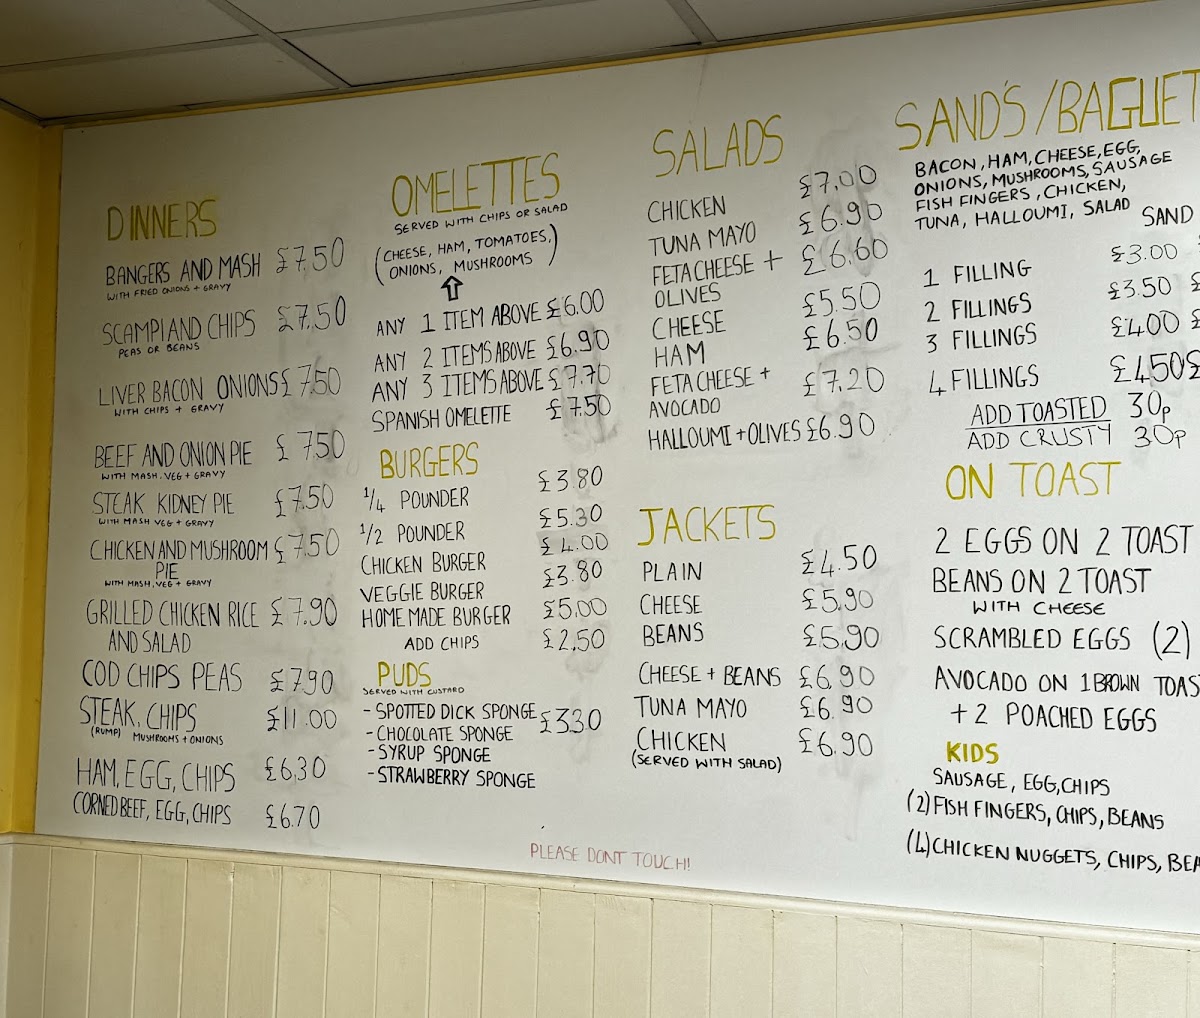 DINNERS
BANGERS AND MASH £7.50
WITH FRIED ONIONS + GRAVY
SCAMPI AND CHIPS £7.50
PEAS OR BEANS
LIVER BACON ONIONS £7.50
WITH CHIPS + GRAVY
BEEF AND ONION PIE £7.50
WITH MASH, VEG + GRAVY
STEAK KIDNEY PIE £7.50
WITH MASH VEG + GRAVY
CHICKEN AND MUSHROOM £7.50
PIE
WITH MASH, VEG + GRAVY
GRILLED CHICKEN RICE £7.90
AND SALAD
COD CHIPS PEAS £7.90
STEAK, CHIPS £11.00
(RUMP) MUSHROOMS + ONIONS
HAM, EGG, CHIPS £6.30
CORNED BEEF, EGG, CHIPS £6.70
OMELETTES
SERVED WITH CHIPS OR SALAD
(CHEESE, HAM, TOMATOES,
ONIONS, MUSHROOMS)
ANY 1 ITEM ABOVE £6.00
ANY 2 ITEMS ABOVE £6.90
ANY 3 ITEMS ABOVE £7.70
SPANISH OMELETTE £7.50
BURGERS
1/4 POUNDER £3.80
1/2 POUNDER £5.30
CHICKEN BURGER £4.00
VEGGIE BURGER £3.80
HOME MADE BURGER £5.00
ADD CHIPS £2.50
PUDS
SERVED WITH CUSTARD
- SPOTTED DICK SPONGE £3.30
- CHOCOLATE SPONGE
- SYRUP SPONGE
- STRAWBERRY SPONGE
SALADS
CHICKEN £7.00
TUNA MAYO £6.90
FETA CHEESE + £6.60
OLIVES
CHEESE £5.50
HAM £6.50
FETA CHEESE + £7.20
AVOCADO
HALLOUMI + OLIVES £6.90
JACKETS
PLAIN £4.50
CHEESE £5.90
BEANS £5.90
CHEESE + BEANS £6.90
TUNA MAYO £6.90
CHICKEN £6.90
(SERVED WITH SALAD)
PLEASE DONT TOUCH!
SAND'S/BAGUET
BACON, HAM, CHEESE, EGG,
ONIONS, MUSHROOMS, SAUSAGE
FISH FINGERS, CHICKEN,
TUNA, HALLOUMI, SALAD
SAND
1 FILLING £3.00
2 FILLINGS £3.50 £
3 FILLINGS £4.00 £
4 FILLINGS £4.50 £
ADD TOASTED 30p
ADD CRUSTY 30p
ON TOAST
2 EGGS ON 2 TOAST
BEANS ON 2 TOAST
WITH CHEESE
SCRAMBLED EGGS (2)
AVOCADO ON 1 BROWN TOAS
+ 2 POACHED EGGS
KIDS
SAUSAGE, EGG, CHIPS
(2) FISH FINGERS, CHIPS, BEANS
(4) CHICKEN NUGGETS, CHIPS, BEA